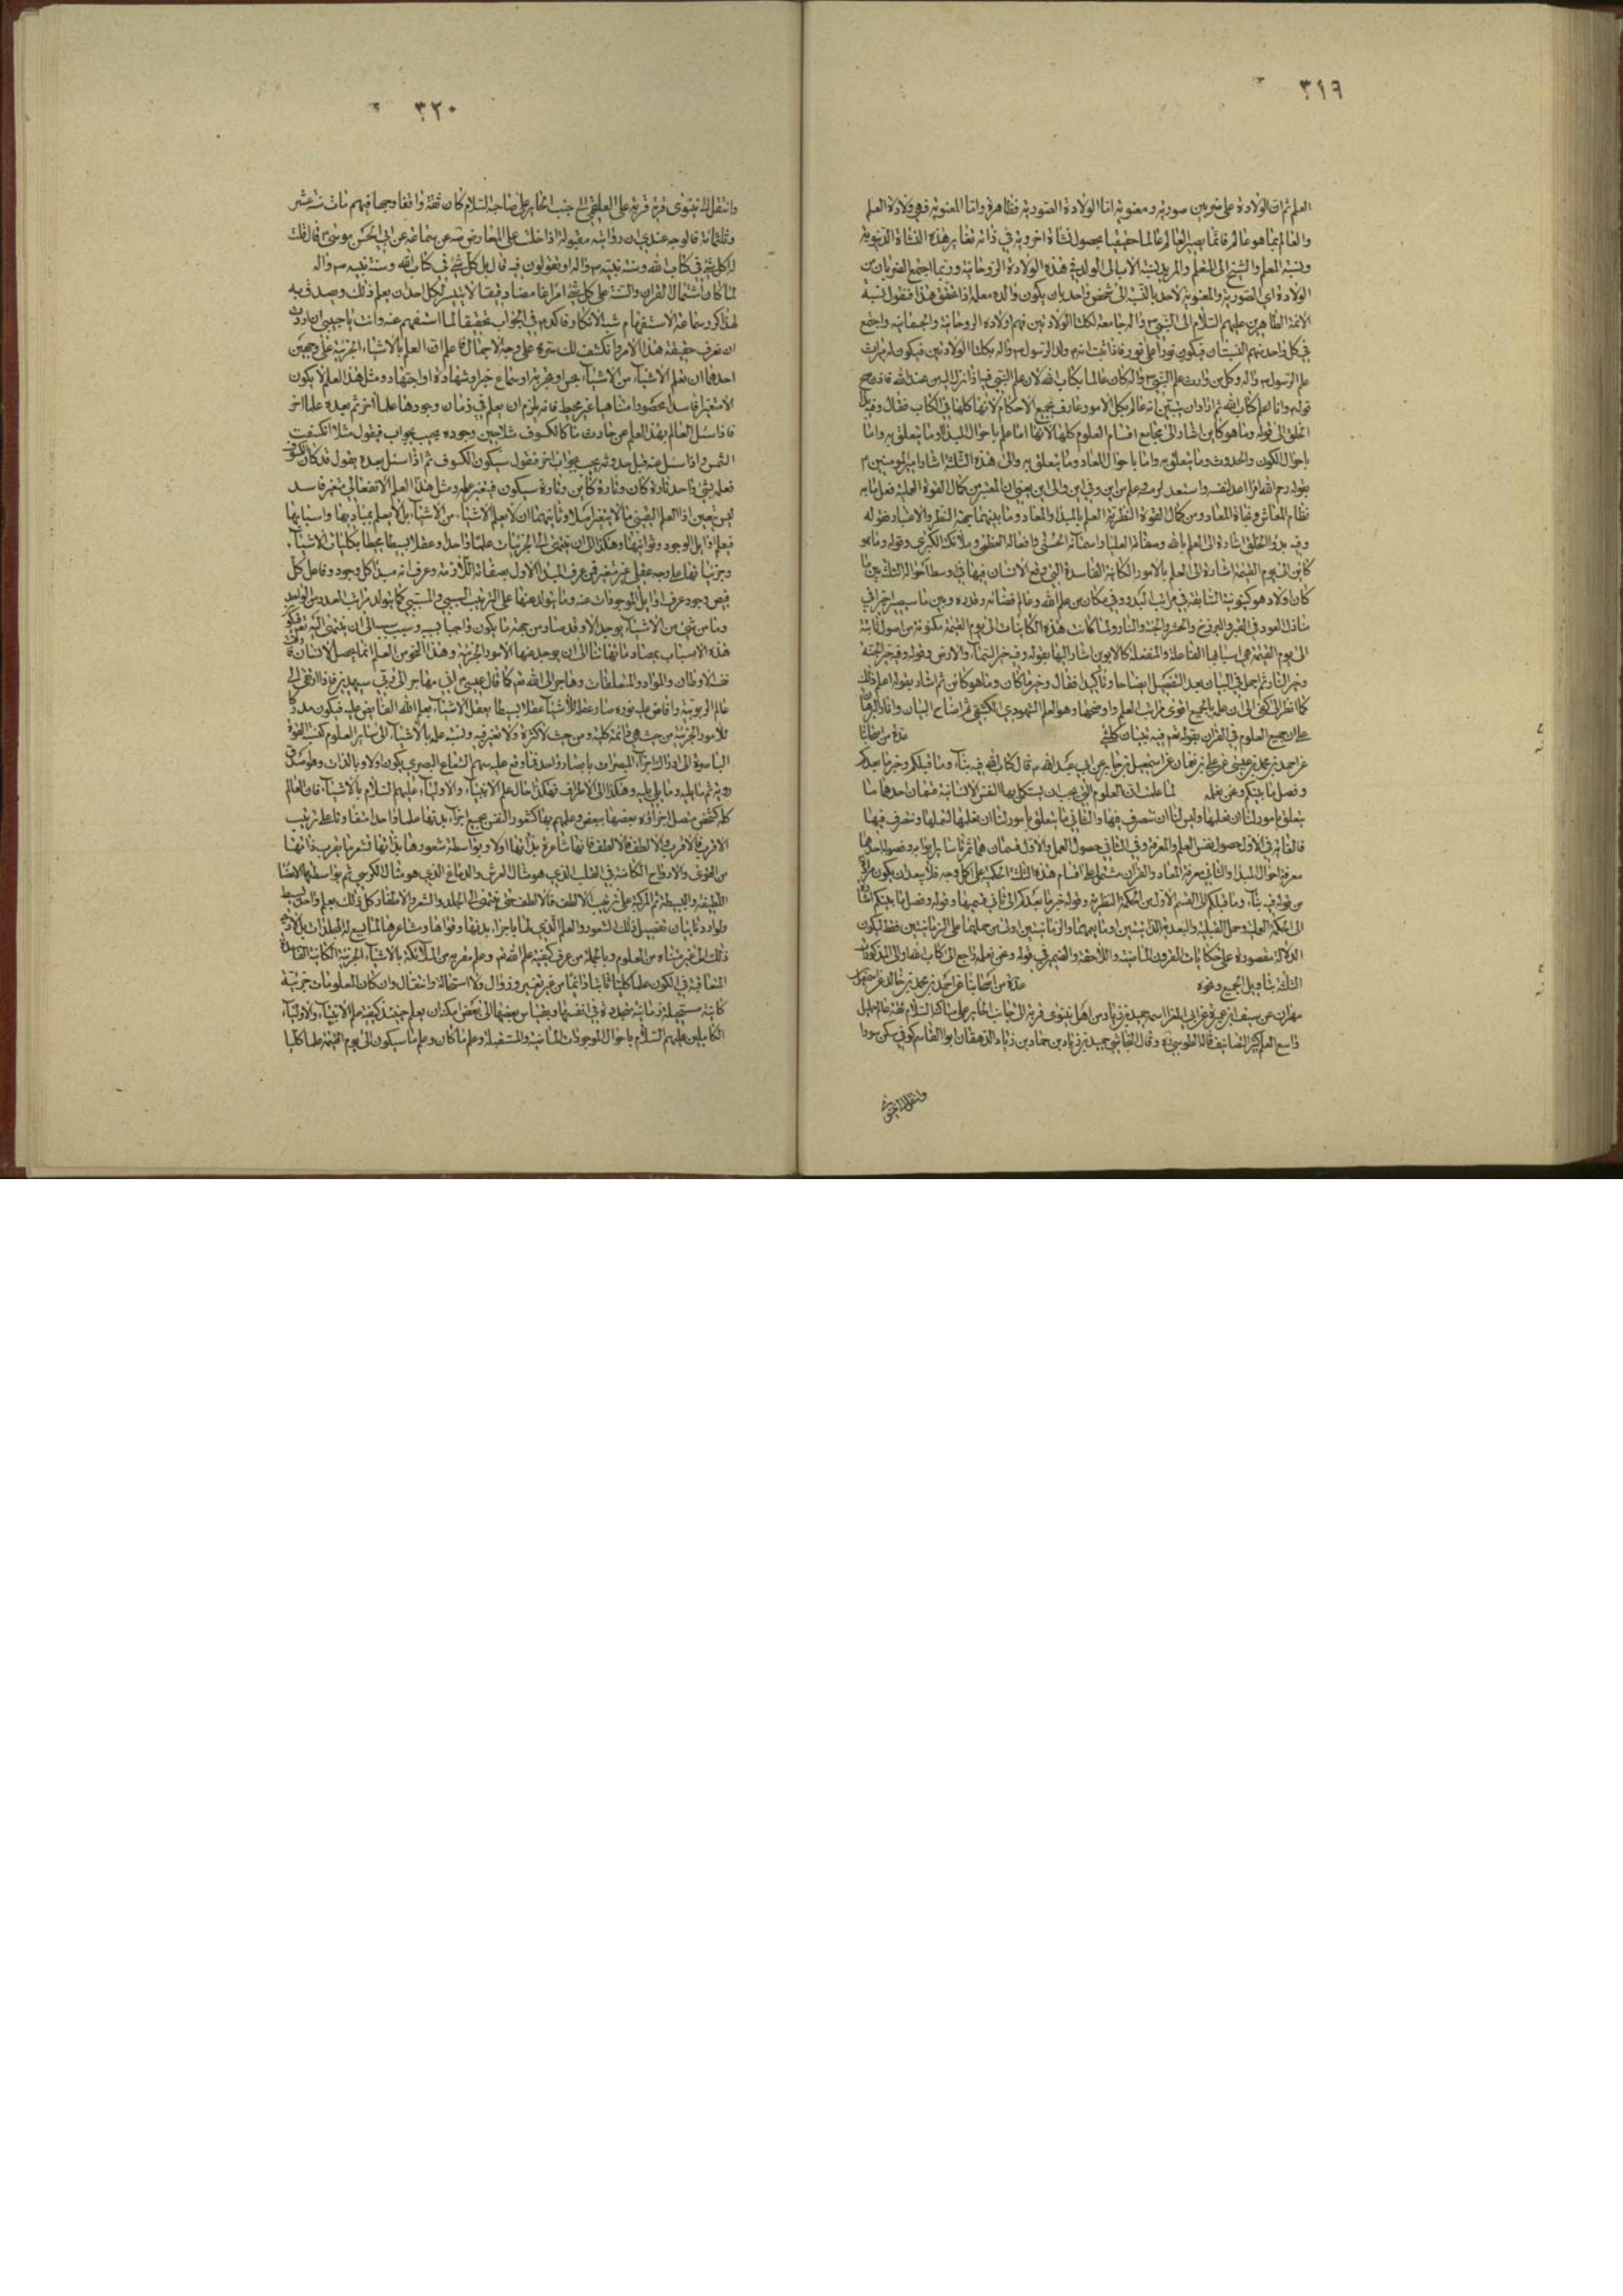 ٣١٩
العلم ثم ان الولادة على ضربين صورية ومعنوية اما الولادة الصورية فظاهرة واما المعنوية فهي ولادة العلم
والعالم بما هو عالم فانما يصير العالم عالما حقيقيا بحصول نشأة اخروية في ذاته تغاير هذه النشأة الدنيوية
ونسبة المعلم والشيخ الى المتعلم والمريد نسبة الاب الى الولد في هذه الولادة الروحانية وربما اجتمع الضربان من
الولادة اي الصورية والمعنوية لاحد بالنسبة الى شخص واحد بان يكون والده معلمه اذا تحقق هذا فنقول نسبة
الائمة الطاهرين عليهم السلام الى النبي ص واله جامعة لكلتا الولادتين فهم اولاده الروحانية والجسمانية واجتمع
في كل واحد منهم النسبتان فيكون نورا على نور فاذا ثبت انه ولد الرسول ص واله بكلتا الولادتين فيكون له ميراث
علم الرسول ص واله وكل من وارث علم النبي ص واله كان عالما بكتاب الله لان علم النبي فيما انزل اليه من عند الله فاذن صح
قوله وانا اعلم كتاب الله ثم اراد ان يتبين انه عالم بكل الامور عارف بجميع الاحكام لانها كلها في الكتاب فقال وفيه بدء
الخلق الى قوله وما هو كائن اشار الى مجامع اقسام العلوم كلها لانها اما علم باحوال المبدأ وما يتعلق به واما
باحوال الكون والحدوث وما يتعلق به واما باحوال المعاد وما يتعلق به والى هذه الثلثة اشار امير المؤمنين ع
بقوله رحم الله امرأ اعد لنفسه واستعد لرمسه وعلم من اين وفي اين والى اين يعني ان المعتبر من كمال القوة العملية فعل ما به
نظام المعاش ونجاة المعاد ومن كمال القوة النظرية العلم بالمبدأ والمعاد وما بينهما من جهة النظر والاعتبار فقوله
وفيه بدؤ الخلق اشارة الى العلم بالله وصفاته العليا واسمائه الحسنى وافعاله العظمى وملائكته الكبرى وقوله وما هو
كائن الى يوم القيمة اشارة الى العلم بالامور الكائنة الفاسدة التي وقع الانسان فيها في وسط احواله الثلث بين ما
كان اولا وهو كينونية السابقة في مراتب البدو وفي مكان من علم الله وعالم قضائه وقدره وبين ما سيصير اخرا في
منازل العود في القبر والبرزخ والحشر والجنة والنار ولما كانت هذه الكاينات الى يوم القيمة مكونة من اصول ثابتة
الى يوم القيمة هي اسبابها الفاعلة والمنفعلة كالابوين اشار اليها بقوله وفيه خبر السماء والارض وقوله وفيه خبر الجنة
وخبر النار ثم اجمل في البيان بعد التفصيل ايضاحا وتاكيدا فقال وخبر ما كان وما هو كائن ثم اشار بقوله اعلم ذلك
كما انظر الى كفي الى ان علمه بالجميع اقوى مراتب العلم واوضحها وهو العلم الشهودي الكشفي
على ان جميع العلوم في القران بقوله تعم فيه تبيان كل شئ عدة من اصحابنا
عن احمد بن محمد بن عيسى عن علي بن نعمان عن اسمعيل بن جابر عن ابي عبد الله ع قال كتاب الله فيه نبأ ما قبلكم وخبر ما بعدكم
وفصل ما بينكم ونحن نعلمه لما علمت ان العلوم التي يجب ان يستكمل بها النفس الانسانية قسمان احدهما ما
يتعلق بامور لنا ان نعلمها وليس لنا ان نتصرف فيها والثاني ما يتعلق بامور لنا ان نعلمها لنعملها ونتصرف فيها
فالغاية في الاول حصول نفس العلم والمعرفة وفي الثاني حصول العمل والاول قسمان
معرفة احوال المبدأ والثاني معرفة المعاد والقران مشتمل على اقسام هذه الثلثة الحكمية على اكمل وجه فلا يبعد ان يكون مراده
من قوله فيه نبأ ما قبلكم الى القسم الاول من الحكمة النظرية وقوله خبر ما بعدكم الى ثاني قسميها وقوله وفصل ما بينكم اشارة
الى الحكمة العملية وحمل القبلية والبعدية الذاتيتين وما يعمهما والزمانيتين اولى من حملهما على الزمانيتين فقط ليكون
الدلالة مقصورة على حكايات القرون الماضية واللاحقة والضمير في قوله ونحن نعلمه راجع الى كتاب الله والى المذكورات
الثلثة بتاويل الجميع ونحوه عدة من اصحابنا عن احمد بن محمد بن خالد عن اسمعيل بن
مهران عن سيف بن عميرة عن ابي المغرا اسمه حميد بن زياد من اهل نينوى قرية الى جانب الحائر على ساكنه السلام ثقة عالم جليل
واسع العلم كثير التصانيف قاله الطوسي ره وقال النجاشي حميد بن زياد بن حماد بن زياد الدهقان ابو القاسم كوفي سكن سورا
وانتقل الى نينوى
٣٢٠
وانتقل الى نينوى قرية على العلقمي الى جنب الحاير على صاحبه السلام كان ثقة واقفا وجها فيهم مات سنة عشر
وثلثمائة قالوجه عندي ان روايته مقبولة اذا خلت عن المعارض عن سماعة عن ابي الحسن موسى ع قال قلت
له اكل شئ في كتاب الله وسنة نبيه ص واله او تقولون فيه قال بل كل شئ في كتاب الله وسنة نبيه ص واله
لما كان اشتمال القران والسنة على كل شئ امرا غامضا دقيقا لا يتيسر لكل احد ان يعلم ذلك ويصدق به
لهذا كرر سماعة الاستفهام شبه الانكار فاكد ع في الجواب تحقيقا لما استفهم عنه وانت يا حبيبي ان اردت
ان تعرف حقيقة هذا الامر وانكشف لك سره على وجه الاجمال فاعلم ان العلم بالاشياء الجزئية على وجهين
احدهما ان نعلم الاشياء من الاشياء بحس او تجربة او سماع خبر او شهادة او اجتهاد ومثل هذا العلم لا يكون
الا متغيرا فاسدا محصورا متناهيا غير محيط فانه يلزم ان يعلم في زمان وجودها علما اخر ثم بعده علما اخر
فاذا سئل العالم بهذا العلم عن حادث ما كالكسوف مثلا حين وجوده يجيب بجواب فيقول مثلا انكسفت
الشمس واذا سئل عنه قبل حدوثه يجيب بجواب اخر فيقول سيكون الكسوف ثم اذا سئل بعده يقول قد كان الكسوف
فعلمه بشئ واحد تارة كان وتارة كائن وتارة سيكون فيتغير علمه ومثل هذا العلم الانفعالي متغير فاسد
ليس بيقين اذ العلم اليقيني ما لا يتغير اصلا وثانيهما ان لا يعلم الاشياء من الاشياء بل لا يعلم بمباديها واسبابها
فيعلم اوايل الوجود وثوانيها وهكذا الى ان ينتهي الى الجزئيات علما واحدا وعقلا بسيطا محيطا بكليات الاشياء
وجزئياتها على وجه عقلي غير متغير فمن عرف المبدأ الاول بصفاته اللازمة وعرف انه مبدأ كل وجود وفاعل كل
فيض وجود عرف اوايل الموجودات عنه وما يتولد عنها على الترتيب السببي والمسببي كما يتولد مراتب العدد من الواحد
وما من شئ من الاشياء يوجد الا وقد صار من جهة ما يكون واجبا بسببه وسبب سببه الى ان ينتهي اليه تعم فيكون
هذه الاسباب بمصادماتها تتادى الى ان يوجد عنها الامور الجزئية وهذا النحو من العلم انما يحصل لانسان
الاوطان والمواد والمتعلقات وهاجر الى الله تعم كما قال عيسى ع اني مهاجر الى ربي سيهدين فاذا ارتقى الى
عالم الربوبية وافاض عليه نوره صار عقله للاشياء عقلا بسيطا يعقل الاشياء بعلم الله الفائض عليه فيكون مدركا
للامور الجزئية من حيث هي دائمة كلية ومن حيث لا كثرة ولا تغير فيه ونسبة علمه بالاشياء الى سائر العلوم كنسبة القوة
الباصرة الى ادراك اجزاء المبصرات بابصار واحد
روية ثم ما يليه وما يلي يليه وهكذا الى الاطراف فهكذا حال علم الانبياء والاولياء عليهم السلام بالاشياء فان العالم
كله كشخص متصل اجزاؤه بعضها ببعض وعلمهم بها كشعور النفس بجميع اجزاء بدنها علما واحدا متفاوتا على ترتيب
الاقرب فالاقرب والالطف فالالطف فانها شاعرة بذاتها اولا وبواسطة شعورها بذاتها تشعر بما يقرب ذاتها
من القوى والارواح الكامنة في القلب الذي هو مثال العرش والدماغ الذي هو مثال الكرسي ثم بواسطتهما الاعضاء
اللطيفة والبسيطة ثم المركبة على ترتيب الالطف فالالطف حتى ينتهي الى الجلد والشعر والاظفار كل ذلك بعلم واحد بسيط
ولو اردنا بيان تفصيل ذلك الشعور والعلم الذي لها باجزاء بدنها وقواها ومشاعرها
ذلك الى غير متناه من العلوم وبالجملة من عرف كيفية علم الله تعم وعلم مقربيه من الملائكة بالاشياء الجزئية الكائنة الفاسدة
المتعاقبة في الكون علما كليا ثابتا دائما من غير تغيير وزوال ولا استحالة وانتقال وان كان المعلومات جزئية
كائنة مستحيلة زمانية متجددة في انفسها وبقياس بعضها الى بعض امكن ان يعلم حينئذ كيفية علم الانبياء والاولياء
الكاملين عليهم السلام باحوال الموجودات الماضية والمستقبلة وعلم ما كان وعلم ما سيكون الى يوم القيمة علما كليا